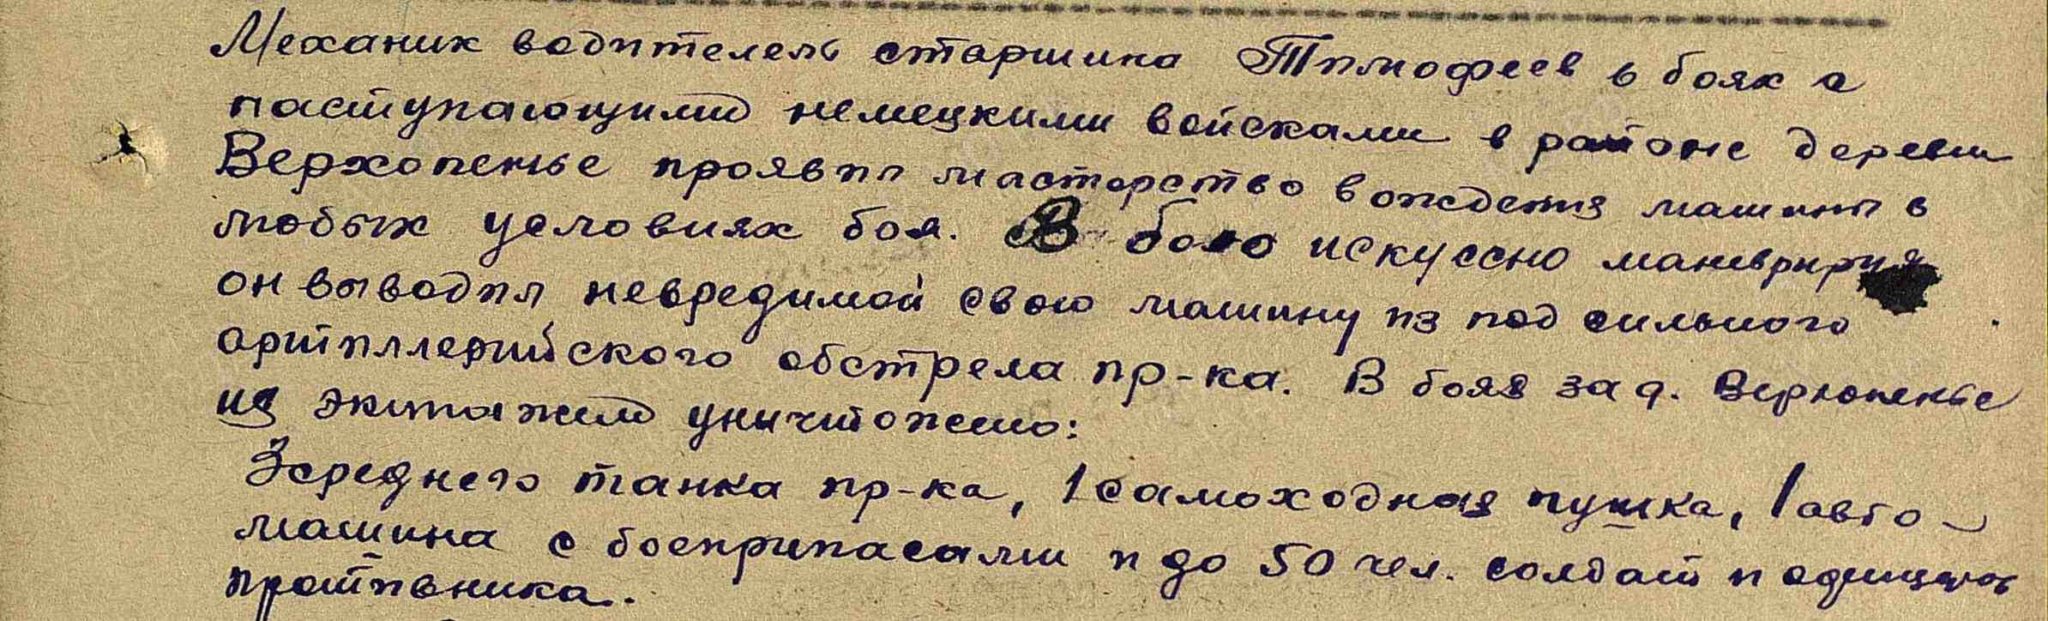 Механик водителель старшина Тимофеев в боях с
наступающими немецкими войсками в районе деревни
Верхопенье проявил мастерство вождения машины в
любых условиях боя. В бою искуссно маневрируя
он выводил невредимой свою машину из под сильного
артиллерийского обстрела пр-ка. В боях за д. Верхопенье
их экипажем уничтожено:
3 среднего танка пр-ка, 1 самоходная пушка, 1 авто-
машина с боеприпасами и до 50 чел. солдат и офицеров
противника.